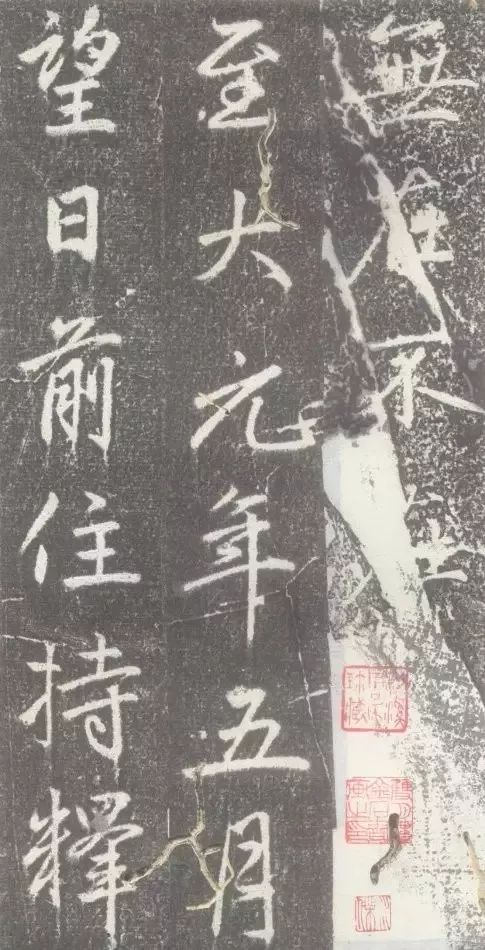 無在不在
至大元年五月
望日前住持釋